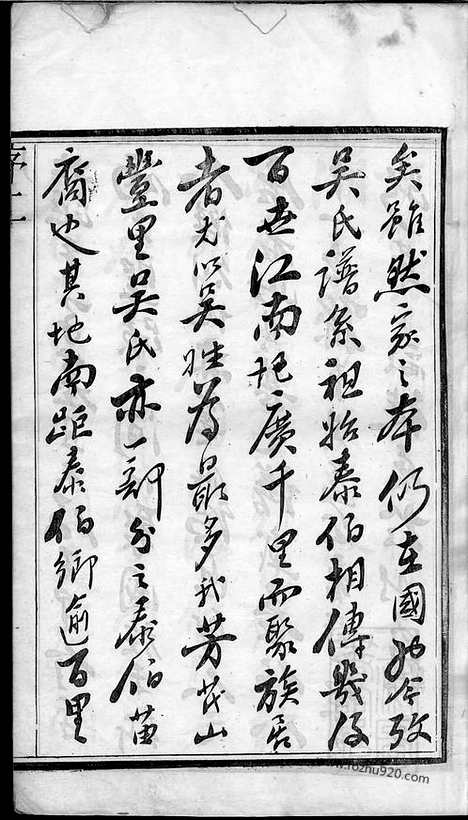 矣雖然家之本仍在國也今攷
吳氏譜系祖始泰伯相傳幾及
百世江南地廣千里而聚族居
者尤以吳姓為最多我芳茂山
豐里吳氏亦一部分之泰伯苗
裔也其地南距泰伯鄉逾百里
www.fozhu920.com